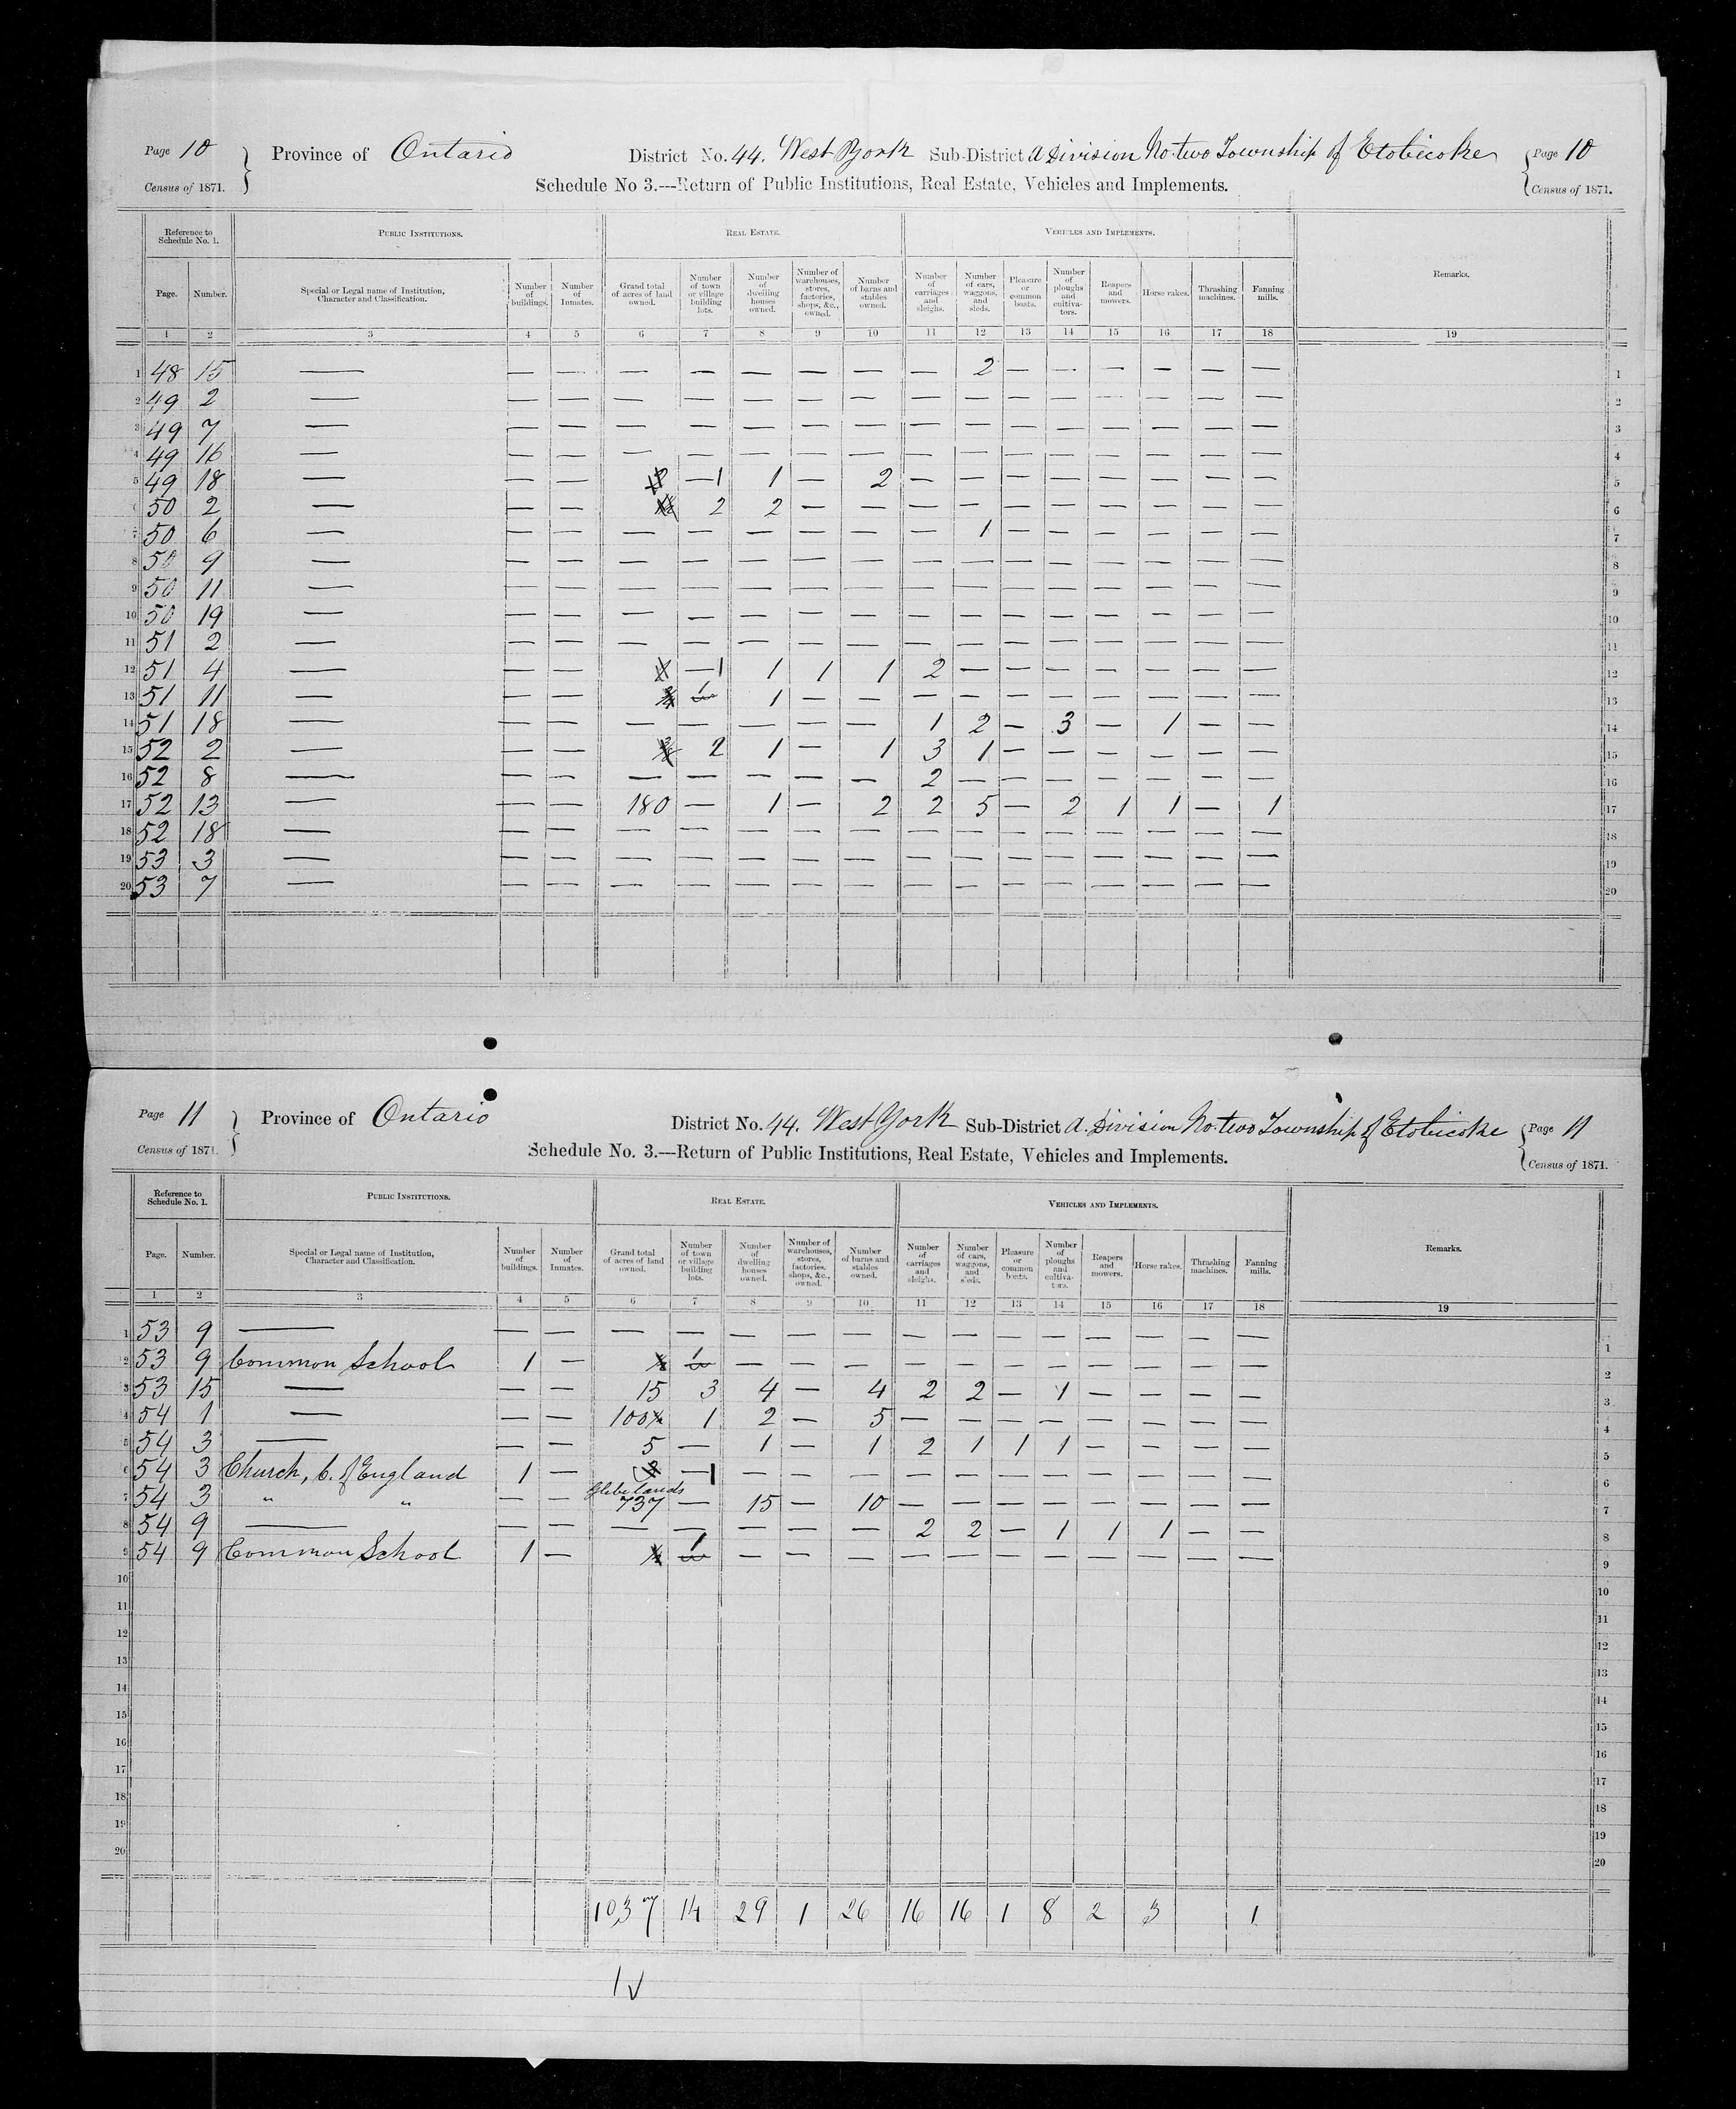 Page 10 Province of Ontario District No. 44. West York Sub-District A Division No. two Township of Etobicoke Page 10
Census of 1871. Schedule No 3.---Return of Public Institutions, Real Estate, Vehicles and Implements. Census of 1871.
Reference to Schedule No. 1. PUBLIC INSTITUTIONS. REAL ESTATE. VEHICLES AND IMPLEMENTS. Remarks.
Page. Number. Special or Legal name of Institution, Character and Classification. Number of buildings. Number of Inmates. Grand total of acres of land owned. Number of town or village building lots. Number of dwelling houses owned. Number of warehouses, stores, factories, shops, &c., owned. Number of barns and stables owned. Number of carriages and sleighs. Number of cars, waggons, and sleds. Pleasure or common boats. Number of ploughs and cultivators. Reapers and mowers. Horse rakes. Thrashing machines. Fanning mills.
1 2 3 4 5 6 7 8 9 10 11 12 13 14 15 16 17 18 19
1 48 15 — — — — — — — — — 2 — — — — — — 1
2 49 2 — — — — — — — — — — — — — — — — 2
3 49 7 — — — — — — — — — — — — — — — — 3
4 49 16 — — — — — — — — — — — — — — — — 4
5 49 18 — — — — 1 1 — 2 — — — — — — — — 5
6 50 2 — — — 2 2 — — — — — — — — — — 6
7 50 6 — — — — — — — — — 1 — — — — — — 7
8 50 9 — — — — — — — — — — — — — — — — 8
9 50 11 — — — — — — — — — — — — — — — — 9
10 50 19 — — — — — — — — — — — — — — — — 10
11 51 2 — — — — — — — — — — — — — — — — 11
12 51 4 — — — — 1 1 1 1 2 — — — — — — — 12
13 51 11 — — — 1 1 — — — — — — — — — — 13
14 51 18 — — — — — — — — 1 2 — 3 — 1 — — 14
15 52 2 — — — 2 1 — 1 3 1 — — — — — — 15
16 52 8 — — — — — — — — 2 — — — — — — — 16
17 52 13 — — — 180 — 1 — 2 2 5 — 2 1 1 — 1 17
18 52 18 — — — — — — — — — — — — — — — — 18
19 53 3 — — — — — — — — — — — — — — — — 19
20 53 7 — — — — — — — — — — — — — — — — 20
Page 11 Province of Ontario District No. 44. West York Sub-District A. Division No. two Township of Etobicoke Page 11
Census of 1871. Schedule No. 3.---Return of Public Institutions, Real Estate, Vehicles and Implements. Census of 1871.
Reference to Schedule No. 1. PUBLIC INSTITUTIONS. REAL ESTATE. VEHICLES AND IMPLEMENTS. Remarks.
Page. Number. Special or Legal name of Institution, Character and Classification. Number of buildings. Number of Inmates. Grand total of acres of land owned. Number of town or village building lots. Number of dwelling houses owned. Number of warehouses, stores, factories, shops, &c., owned. Number of barns and stables owned. Number of carriages and sleighs. Number of cars, waggons, and sleds. Pleasure or common boats. Number of ploughs and cultivators. Reapers and mowers. Horse rakes. Thrashing machines. Fanning mills.
1 2 3 4 5 6 7 8 9 10 11 12 13 14 15 16 17 18 19
1 53 9 — — — — — — — — — — — — — — — — 1
2 53 9 Common School 1 — 1 — — — — — — — — — — — 2
3 53 15 — — — 15 3 4 — 4 2 2 — 1 — — — — 3
4 54 1 — — — 100 1 2 — 5 — — — — — — — — 4
5 54 3 — — — 5 — 1 — 1 2 1 1 1 — — — — 5
6 54 3 Church, C. of England 1 — — 1 — — — — — — — — — — — 6
Glebe lands
7 54 3 " " — — 737 — 15 — 10 — — — — — — — — 7
8 54 9 — — — — — — — — 2 2 — 1 1 1 — — 8
9 54 9 Common School 1 — 1 — — — — — — — — — — — 9
10 10
11 11
12 12
13 13
14 14
15 15
16 16
17 17
18 18
19 19
20 20
1037 14 29 1 26 16 16 1 8 2 3 1
1 √